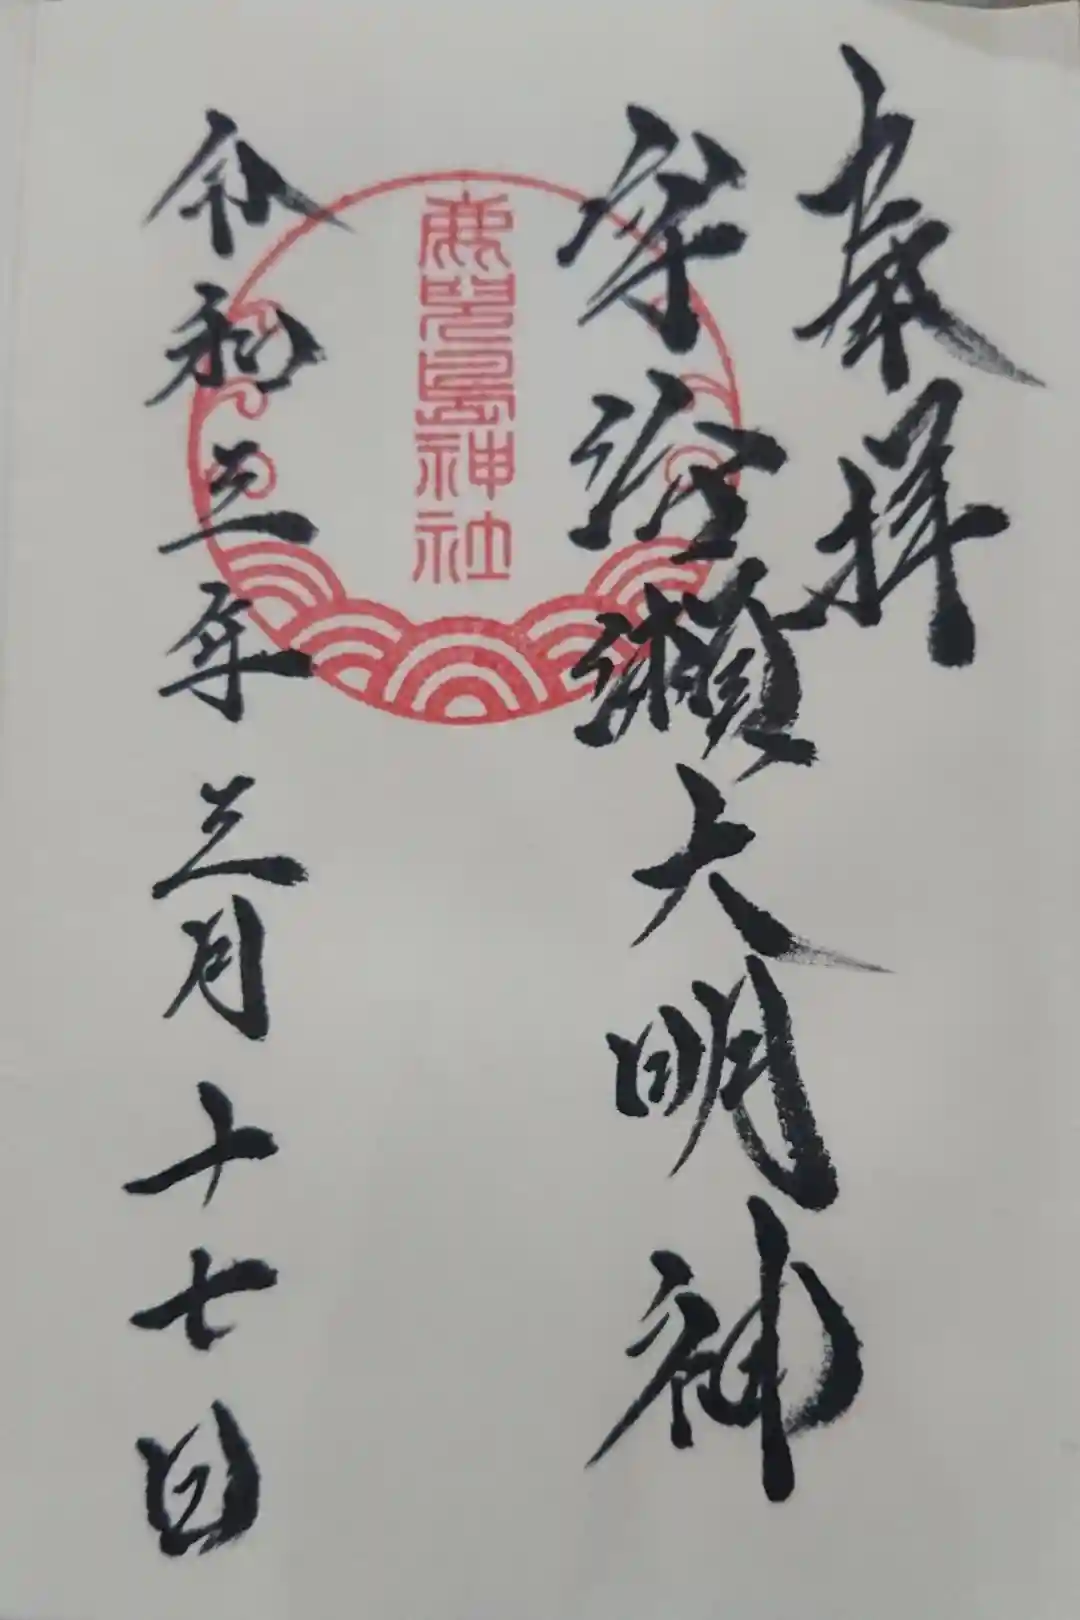 奉拝
宇治瀬大明神
鹿兒島神社
令和三年三月十七日